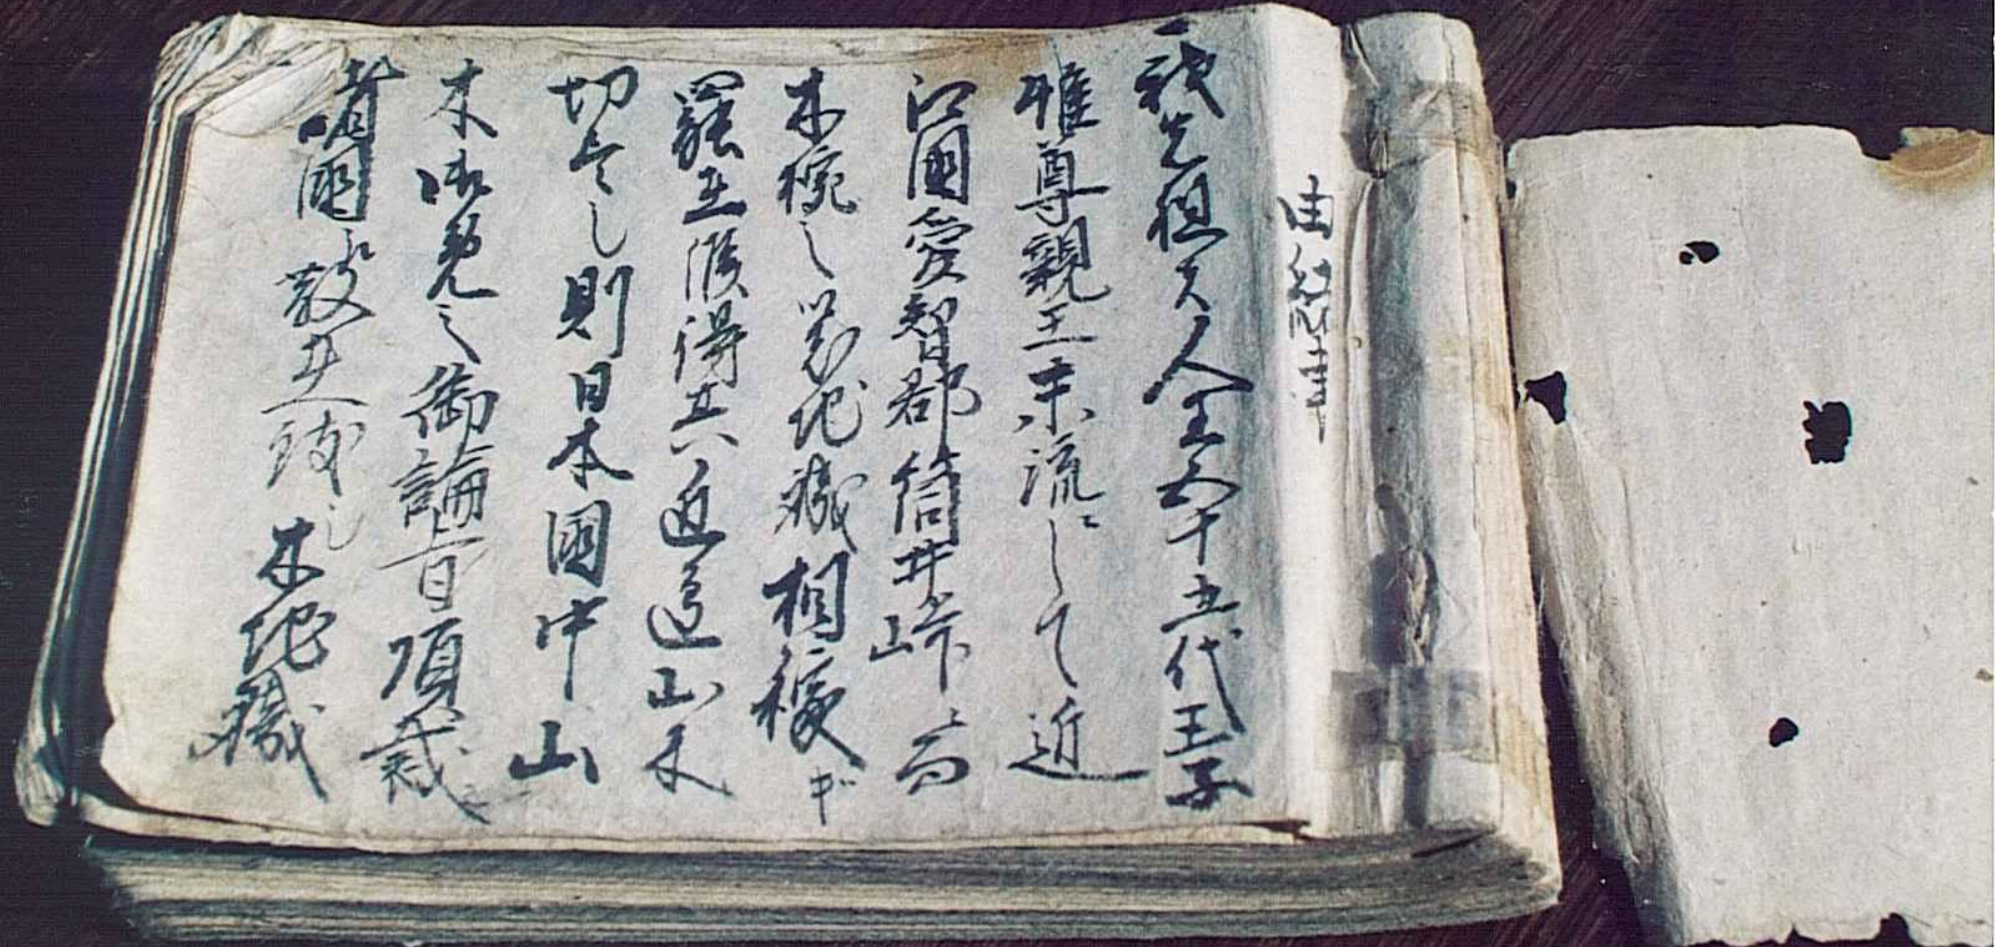 由緒書
一我先祖者人王五十五代王子
惟尊親王末流ニして近
江國愛智郡筒井峠ニ而
木椀之地職相稼ギ
罷在候得共近邊山木
切尽し則日本國中山
木御免之御論旨頂戴
諸國江散在致し木地職